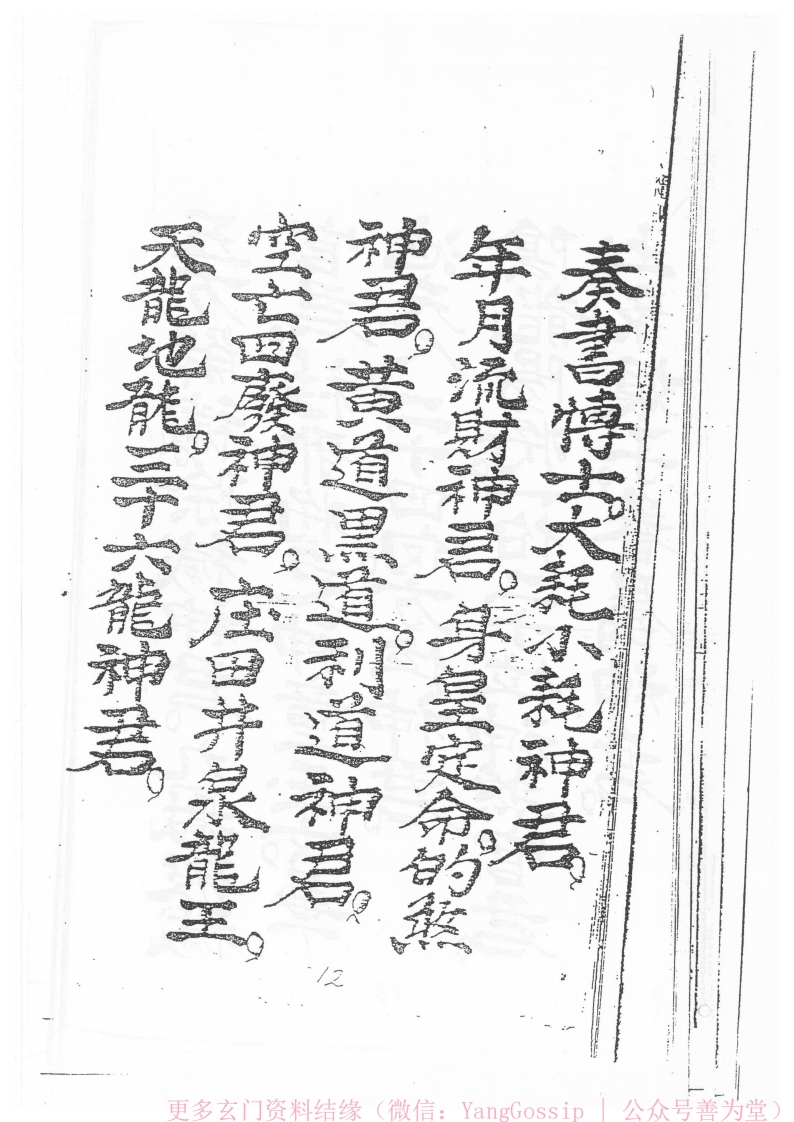 奏書博士。大耗小耗神君。
年月流財神君。身皇定命。的煞
神君。黄道黑道。利道神君。
空亡四廢神君。庄田井泉龍王。
天龍地龍。三十六龍神君。
12
更多玄门资料结缘（微信：YangGossip | 公众号善为堂）